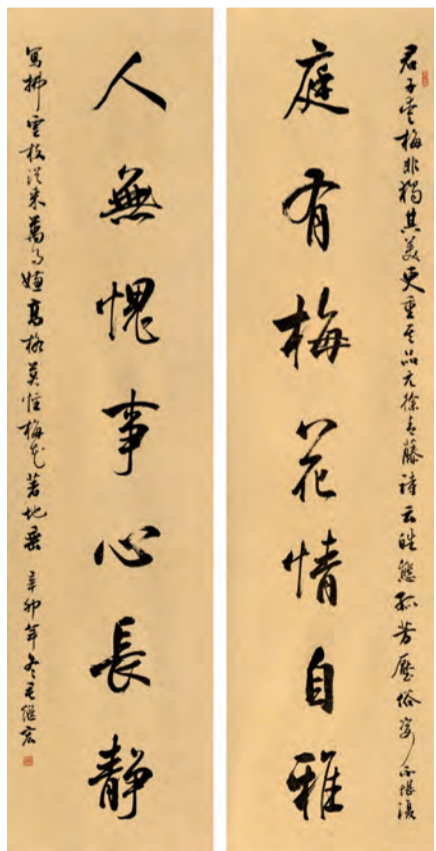 君子愛梅非獨其美更重其品徐青藤詩云皓態孤芳壓俗姿不堪復
庭有梅花情自雅
人無愧事心長靜
寫拂雲枝從來萬事嫌高格莫怪梅花著地垂 辛卯年冬繼宏